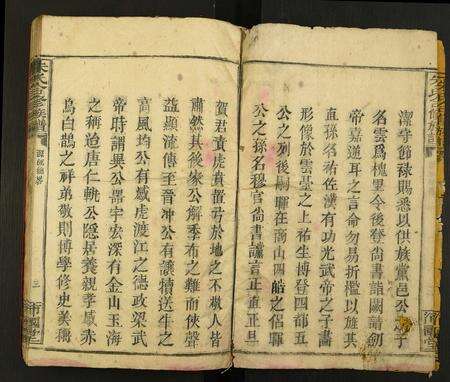 潔守節祿賜悉以供族黨邑公之子
名雲爲槐里令後登尚書詣闕請劒
帝嘉謹耳之言命勿易折檻以旌其
直孫名祐佐漢有功光武帝之子畫
形像於雲臺之上祐生博登四部五
公之列後嗣聯在商山四皓之侶聯
公之孫名穆官尚書讜言正直正旦
賀君責虎賁苟於地之不檢人皆
肅然其後家公解季布之難而俠聲
益顯流傳至晉冲公有讓犢送牛之
高風均公有感虎渡江之德政梁武
帝時謂异公器宇宏深有金山玉海
之稱迨唐仁軌公隱居養親孝感赤
烏白鵲之祥弟敬則博學修史美獨
朱氏合修族譜
源流總畧
三